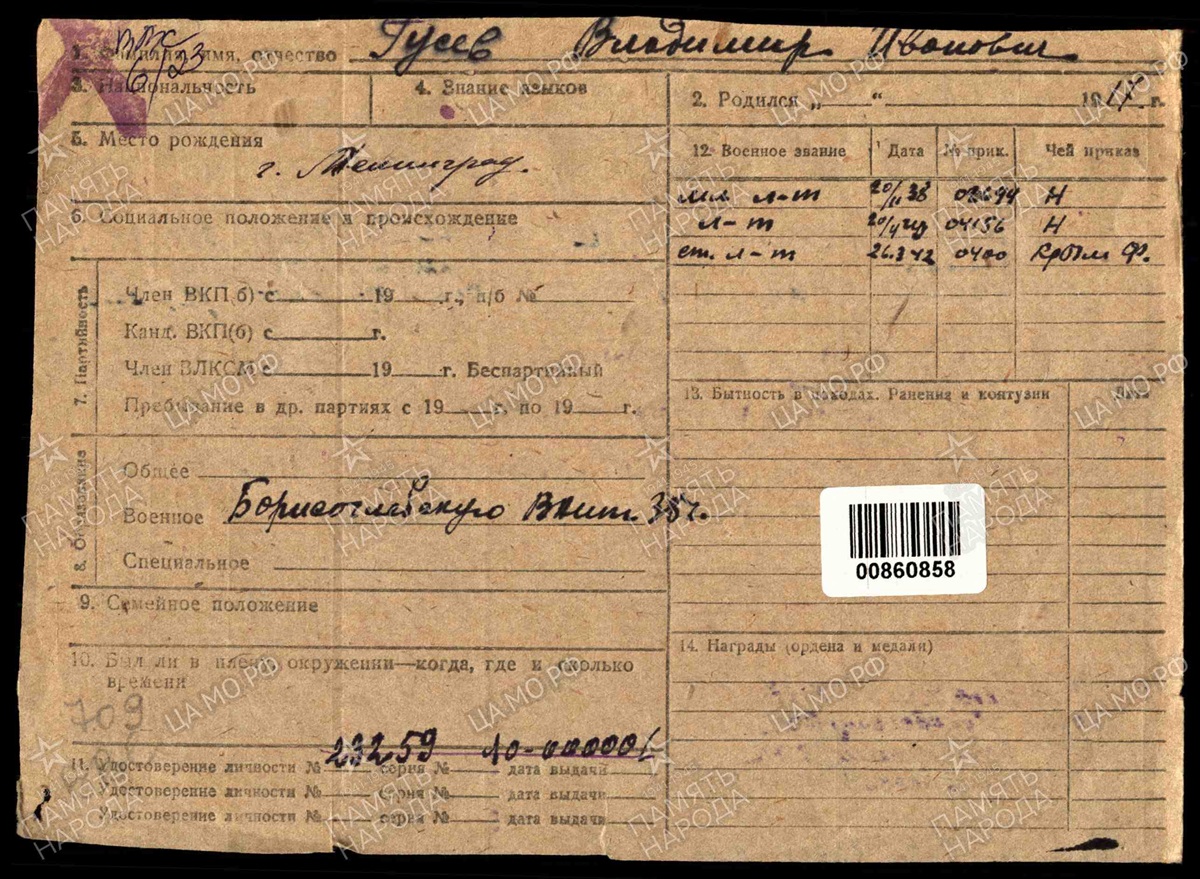 ВВК
6/23
1. Фамилия, имя, отчество Гусев Владимир Иванович
3. Национальность
4. Знание языков
2. Родился „ “ 19 г.
5. Место рождения
г. Ленинград.
12. Военное звание Дата № прик. Чей приказ
мл л-т 20/II 38 Н
л-т 20/V 04156 Н
ст. л-т 26.3 42 0400 Крым Ф.
6. Социальное положение и происхождение
7. Партийность
Член ВКП(б) с 19 г., п/б №
Канд. ВКП(б) с г.
Член ВЛКСМ с 19 г. Беспартийный
Пребывание в др. партиях с 19 г. по 19 г.
13. Бытность в походах. Ранения и контузии
8. Образование
Общее
Военное Борисоглебскую 38 г.
Специальное
00860858
9. Семейное положение
10. Был ли в плену, окружении—когда, где и сколько
времени
14. Награды (ордена и медали)
709
23259
11. Удостоверение личности № серия № дата выдачи
Удостоверение личности № серия № дата выдачи
Удостоверение личности № серия № дата выдачи
ПАМЯТЬ НАРОДА
ЦА МО РФ